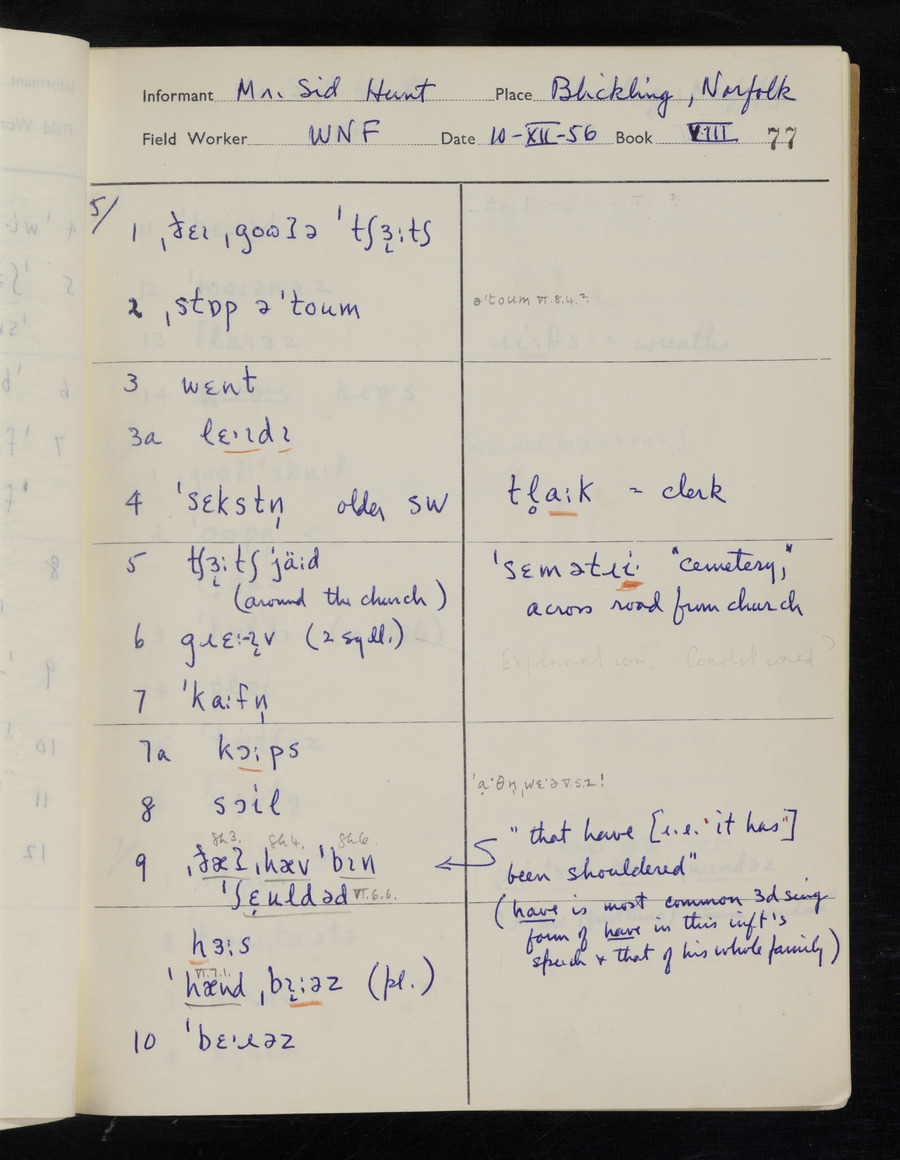 Informant Mr. Sid Hunt Place Blickling, Norfolk
Field Worker WNF Date 10-XII-56 Book VIII 77
5/
1 ˌðɛɪ ˌgoʊʔə ˈtʃɜ̣ːtʃ
2 ˌstɒp əˈtoum
əˈtoum VI.8.4.?
3 wɛnt
3a lɛˑɪdɪ
4 ˈsɛkstn̩ older SW
tl̥aːk = clerk
5 tʃɜ̣ːtʃ ˈjäːd
(around the church)
ˈsɛmətɹiˑ "cemetery,"
across road from church
6 gɹɛːɪv (2 syll.)
7 ˈkaːfn̩
7a kɔːps
8 sɔil
9 ˌðæʔ ˌhæv ˈbɪn
ˈʃɛuldəd VI.6.6.
"that have [i.e. "it has"]
been shouldered"
(have is most common 3d sing
form of have in this inft's
speech & that of his whole family)
hɜːs
VI.7.1.
ˈhænd ˌbɪːəz (pl.)
10 ˈbɛˑɹəz